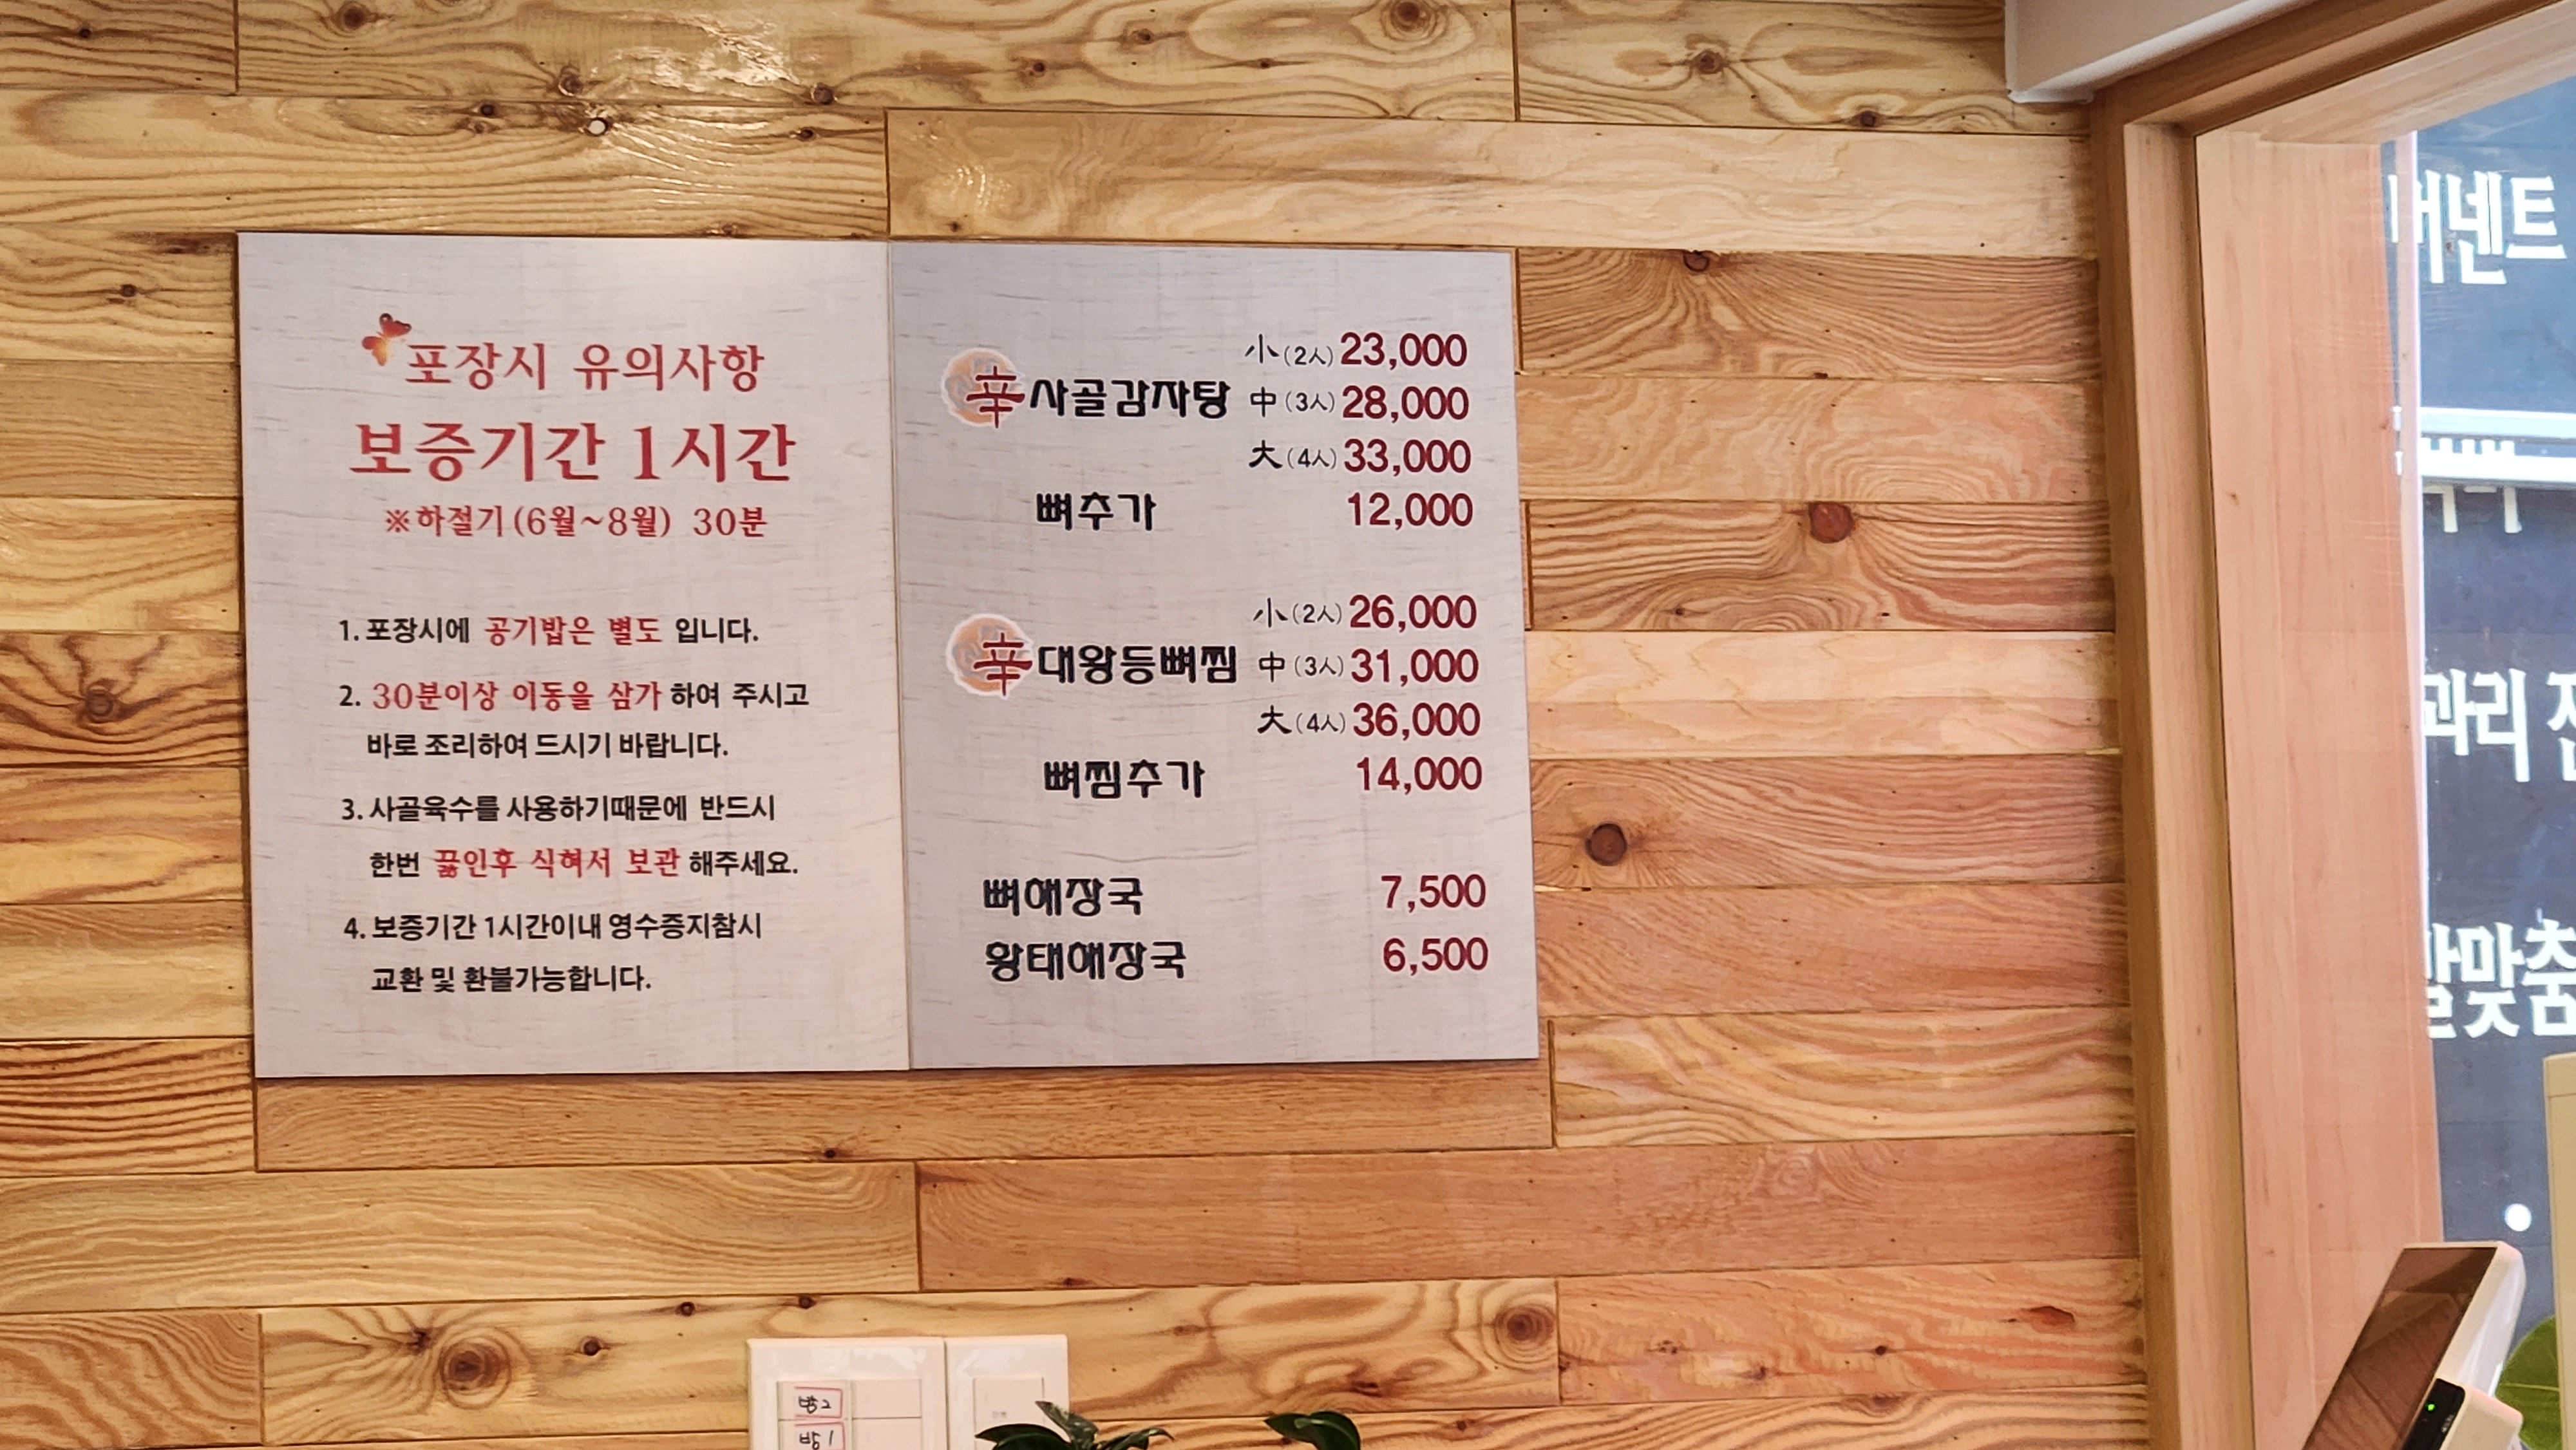 포장시 유의사항
보증기간 1시간
※하절기(6월~8월) 30분
1. 포장시에 공기밥은 별도 입니다.
2. 30분이상 이동을 삼가 하여 주시고
바로 조리하여 드시기 바랍니다.
3. 사골육수를 사용하기때문에 반드시
한번 끓인후 식혀서 보관 해주세요.
4. 보증기간 1시간이내 영수증지참시
교환 및 환불가능합니다.
小(2人) 23,000
辛사골감자탕 中(3人) 28,000
大(4人) 33,000
뼈추가 12,000
小(2人) 26,000
辛대왕등뼈찜 中(3人) 31,000
大(4人) 36,000
뼈찜추가 14,000
뼈해장국 7,500
황태해장국 6,500
방2
방1